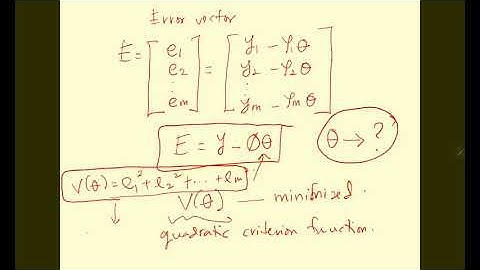 Error vector
E = [e1 e2 ⋮ em] = [y1 − φ1θ y2 − φ2θ ⋮ ym − φmθ]
E = y − Øθ
θ → ?
V(θ) = e1² + e2² + ... + em
V(θ) — minimized.
quadratic criterion function.